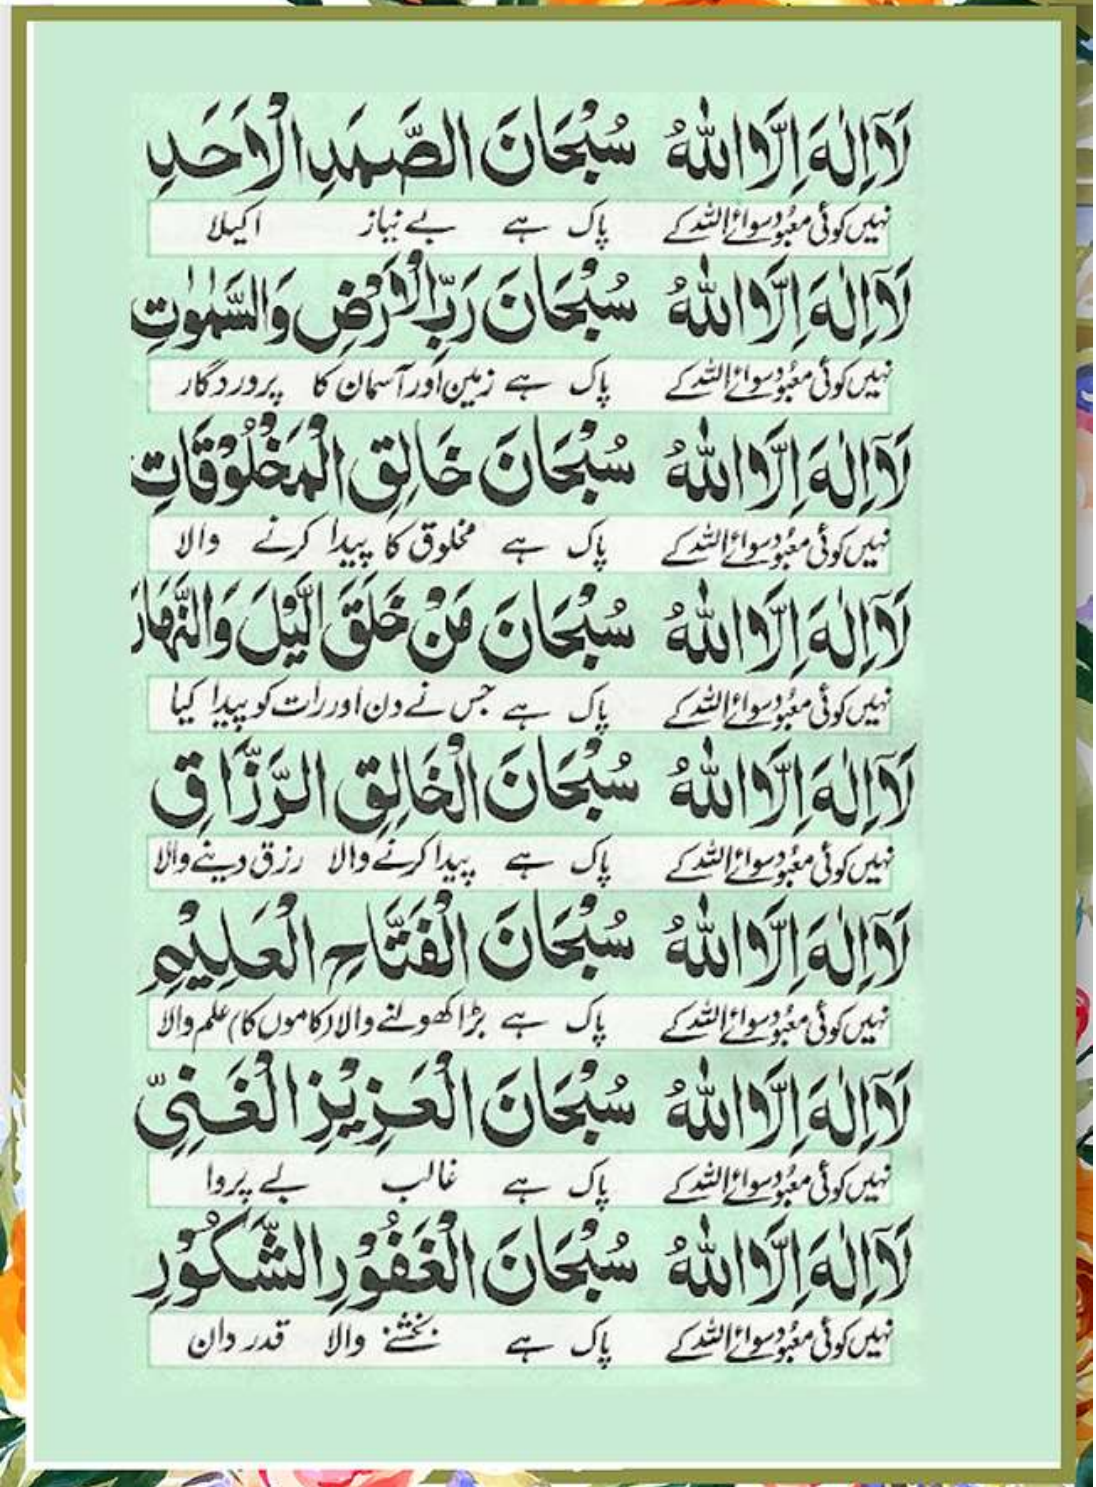 لَآاِلٰهَ اِلَّا اللهُ سُبْحَانَ الصَّمَدِ الْاَحَدِ
نہیں کوئی معبُود سوائے اللہ کے پاک ہے بے نیاز اکیلا
لَآاِلٰهَ اِلَّا اللهُ سُبْحَانَ رَبِّ الْاَرْضِ وَالسَّمٰوٰتِ
نہیں کوئی معبُود سوائے اللہ کے پاک ہے زمین اور آسمان کا پروردگار
لَآاِلٰهَ اِلَّا اللهُ سُبْحَانَ خَالِقِ الْمَخْلُوْقَاتِ
نہیں کوئی معبُود سوائے اللہ کے پاک ہے مخلوق کا پیدا کرنے والا
لَآاِلٰهَ اِلَّا اللهُ سُبْحَانَ مَنْ خَلَقَ الَّيْلَ وَالنَّهَارَ
نہیں کوئی معبُود سوائے اللہ کے پاک ہے جس نے دن اور رات کو پیدا کیا
لَآاِلٰهَ اِلَّا اللهُ سُبْحَانَ الْخَالِقِ الرَّزَّاقِ
نہیں کوئی معبُود سوائے اللہ کے پاک ہے پیدا کرنے والا رزق دینے والا
لَآاِلٰهَ اِلَّا اللهُ سُبْحَانَ الْفَتَّاحِ الْعَلِيْمِ
نہیں کوئی معبُود سوائے اللہ کے پاک ہے بڑا کھولنے والا (کاموں کا) علم والا
لَآاِلٰهَ اِلَّا اللهُ سُبْحَانَ الْعَزِيْزِ الْغَنِيِّ
نہیں کوئی معبُود سوائے اللہ کے پاک ہے غالب بے پروا
لَآاِلٰهَ اِلَّا اللهُ سُبْحَانَ الْغَفُوْرِ الشَّكُوْرِ
نہیں کوئی معبُود سوائے اللہ کے پاک ہے بخشنے والا قدر دان